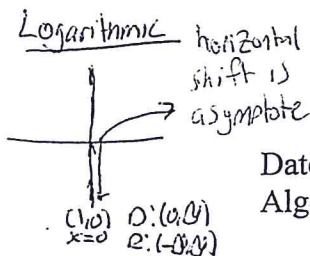 Logarithmic
horizontal
shift is
asymptote
(1,0) D:(0,∞)
x=0 R:(-∞,∞)
Date
Alg